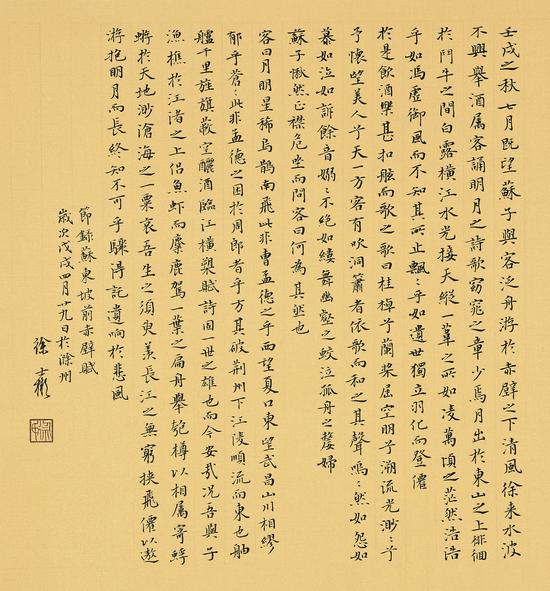 壬戌之秋七月既望蘇子與客泛舟游於赤壁之下清風徐来水波
不興舉酒属客誦明月之詩歌窈窕之章少焉月出於東山之上徘徊
於鬥牛之間白露横江水光接天縱一葦之所如凌萬頃之茫然浩浩
乎如馮虚御風而不知其所止飄〻乎如遺世獨立羽化而登僊
於是飲酒樂甚扣舷而歌之歌曰桂棹兮蘭槳空明兮溯流光渺〻兮
予懷望美人兮天一方客有吹洞簫者依歌而和之其聲嗚〻然如怨如
慕如泣如訴餘音嫋〻不絕如縷舞幽壑之蛟泣孤舟之嫠婦
蘇子愀然正襟危坐而問客曰何為其然也
客曰月明星稀烏鵲南飛此非曹孟德之乎西望夏口東望武昌山川相繆
郁乎蒼〻此非孟德之困於周郎者乎方其破荆州下江陵順流而東也舳
艫千里旌旗蔽空釃酒臨江横槊賦詩固一世之雄也而今安哉况吾與子
漁樵於江渚之上侣魚蝦而麋鹿駕一葉之扁舟舉匏樽以相属寄蜉
蝣於天地渺滄海之一粟哀吾生之須臾羡長江之無窮挾飛僊以遨
游抱明月而長終知不可乎驟得託遺响於悲風
節録蘇東坡前赤壁賦
歲次戊戌四月廿九日於滁州
徐